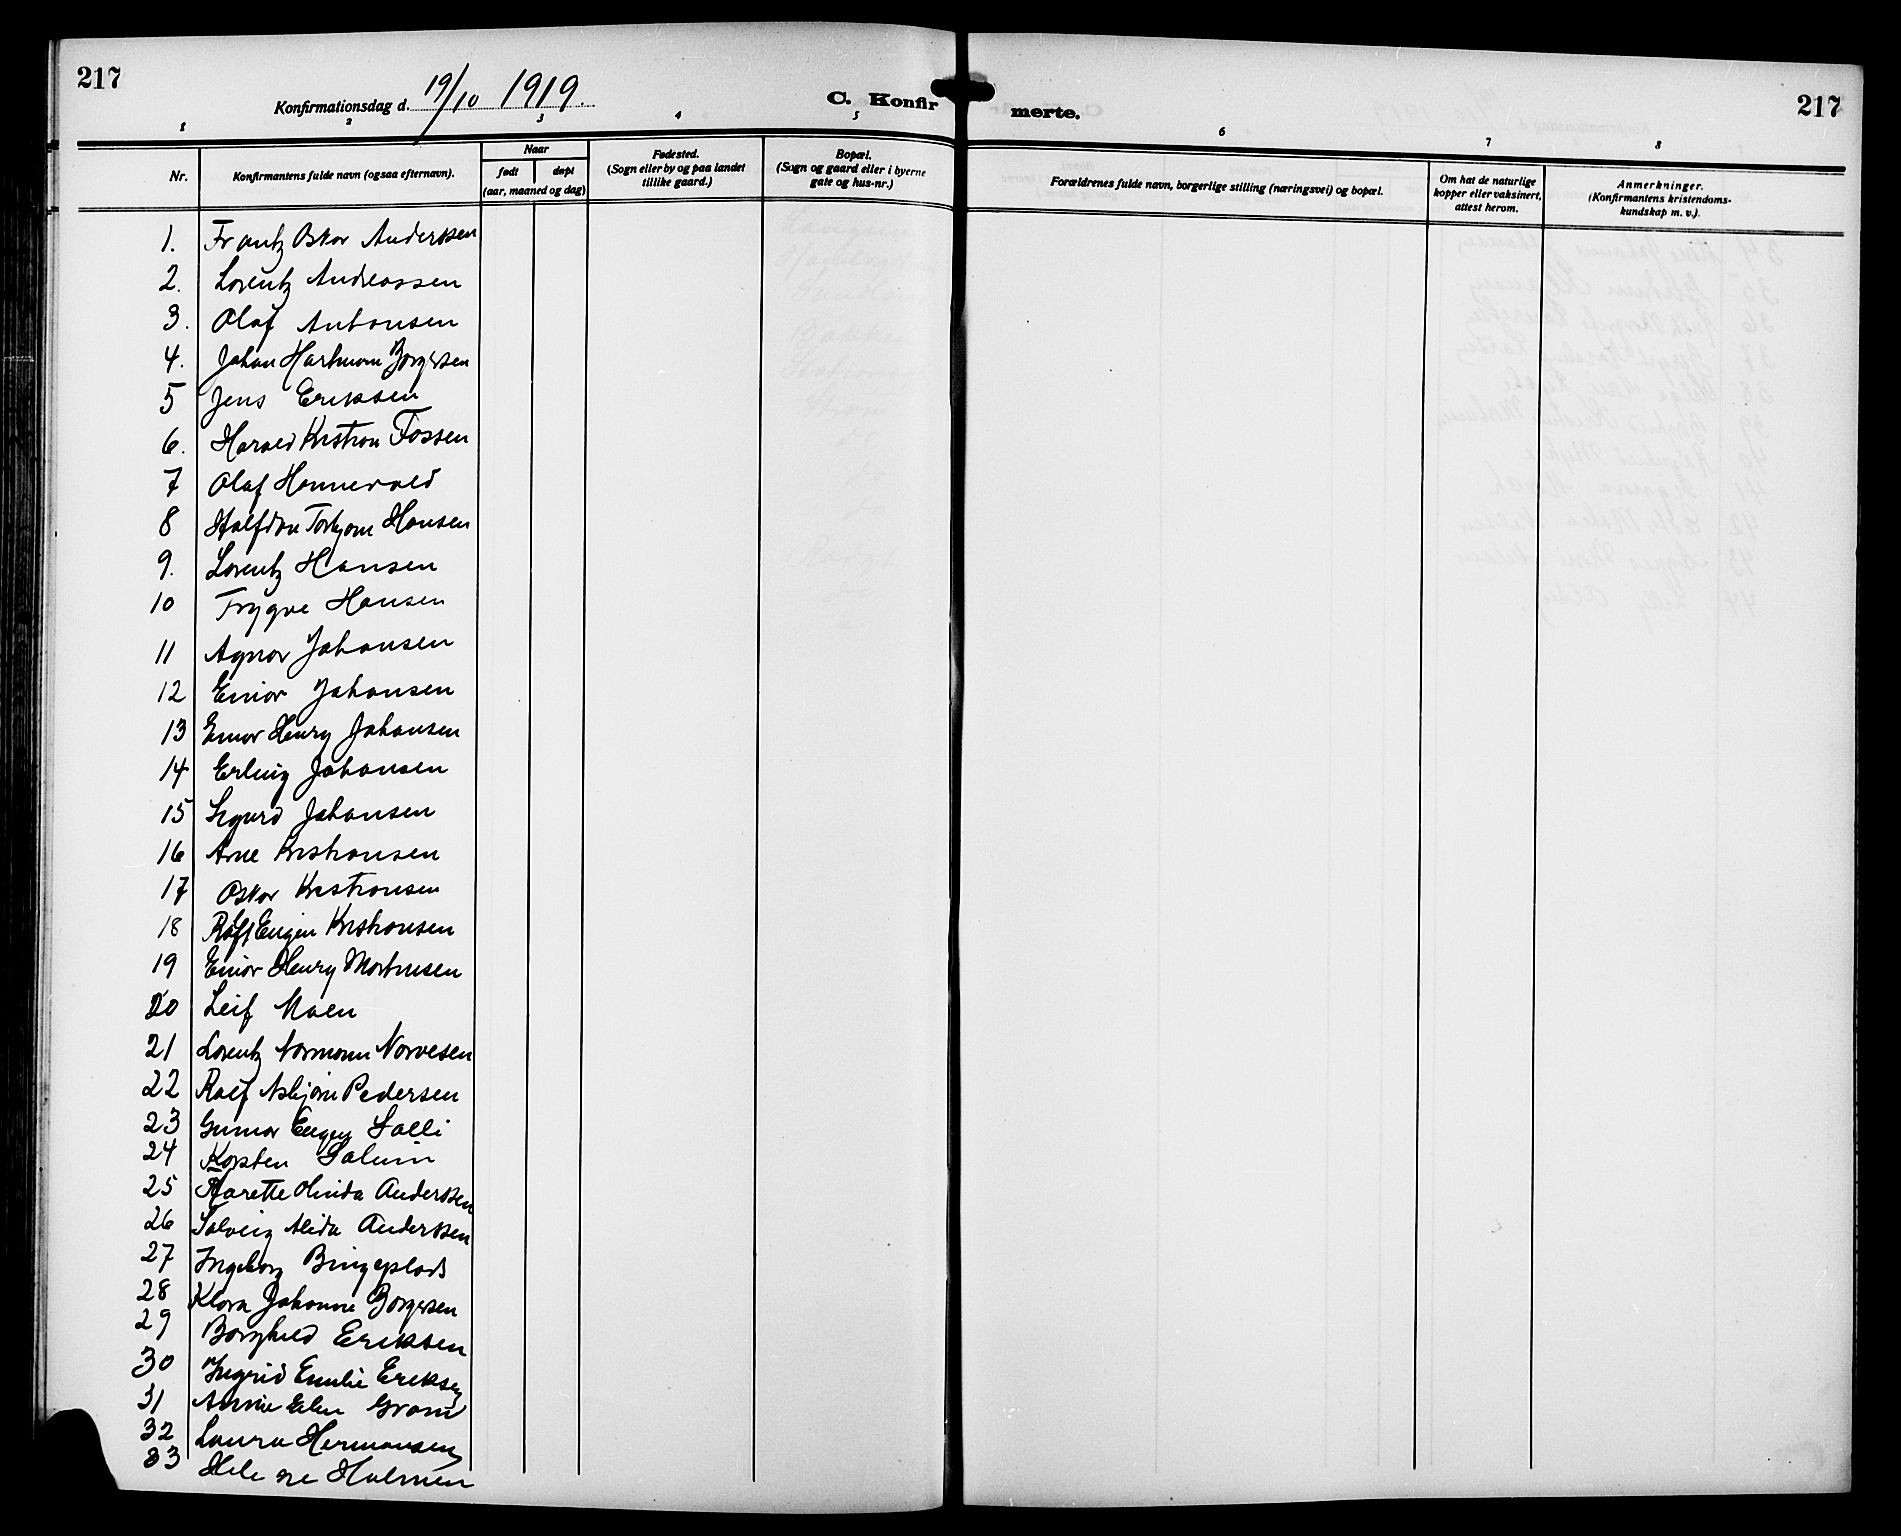 217
Konfirmationsdag d. 19/10 1919.
C. Konfirmerte.
217
1 2 3 4 5 6 7 8
Nr.
Konfirmantens fulde navn (ogsaa efternavn).
Naar
født døpt
(aar, maaned og dag)
Fødested.
(Sogn eller by og paa landet
tillike gaard.)
Bopæl.
(Sogn og gaard eller i byerne
gate og hus-nr.)
Forældrenes fulde navn, borgerlige stilling (næringsvei) og bopæl.
Om hat de naturlige
kopper eller vaksinert,
attest herom.
Anmerkninger.
(Konfirmantens kristendoms-
kundskap m. v.).
1. Frantz Oskar Anderssen
2. Lorentz Andreassen
3. Olaf Antonsen
4. Johan Hartmann Borgersen
5 Jens Eriksen
6. Harald Kristian Fossen
7 Olaf Hannevold
8 Halfdan Torbjørn Hansen
9. Lorentz Hansen
10 Trygve Hansen
11 Agnar Johansen
12 Einar Johansen
13 Einar Henry Johansen
14 Erling Johansen
15 Sigurd Johansen
16 Arne Kristiansen
17 Oskar Kristiansen
18 Rolf Eugen Kristiansen
19 Einar Henry Martinsen
20 Leif Moen
21 Lorentz Normann Norvesen
22 Rolf Asbjørn Pedersen
23 Gunnar Eugen Solli
24 Karsten Solum
25 Marette Olinda Anderssen
26 Solveig Alida Anderssen
27 Ingeborg Bingeplads
28 Klara Johanne Borgersen
29 Borghild Eriksen
30 Ingrid Emilie Eriksen
31 Annie Elen Gram
32 Laura Hermansen
33 Helene Holmen